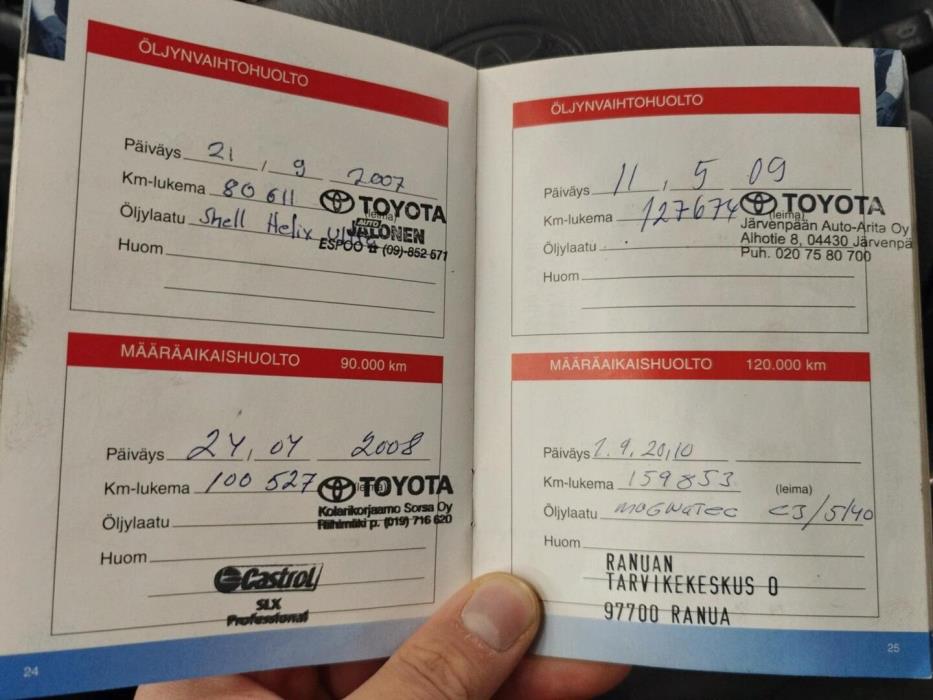 ÖLJYNVAIHTOHUOLTO
Päiväys 21 , 9 2007
Km-lukema 80 611 (leima)
TOYOTA
Öljylaatu Shell Helix
AUTO JALONEN
ESPOO ☎ (09)-852 571
Huom
MÄÄRÄAIKAISHUOLTO 90.000 km
Päiväys 24, 04 2008
Km-lukema 100 527 (leima)
TOYOTA
Kolarikorjaamo Sorsa Oy
Öljylaatu
Riihimäki p. (019) 716 620
Huom
Castrol
SLX
Professional
24
ÖLJYNVAIHTOHUOLTO
Päiväys 11 , 5 09
Km-lukema 127674 (leima)
TOYOTA
Järvenpään Auto-Arita Oy
Öljylaatu
Alhotie 8, 04430 Järvenpä
Puh. 020 75 80 700
Huom
MÄÄRÄAIKAISHUOLTO 120.000 km
Päiväys 1.9.20,10
Km-lukema 159853 (leima)
Öljylaatu MAGNATEC C3/5/40
Huom
RANUAN
TARVIKEKESKUS O
97700 RANUA
25